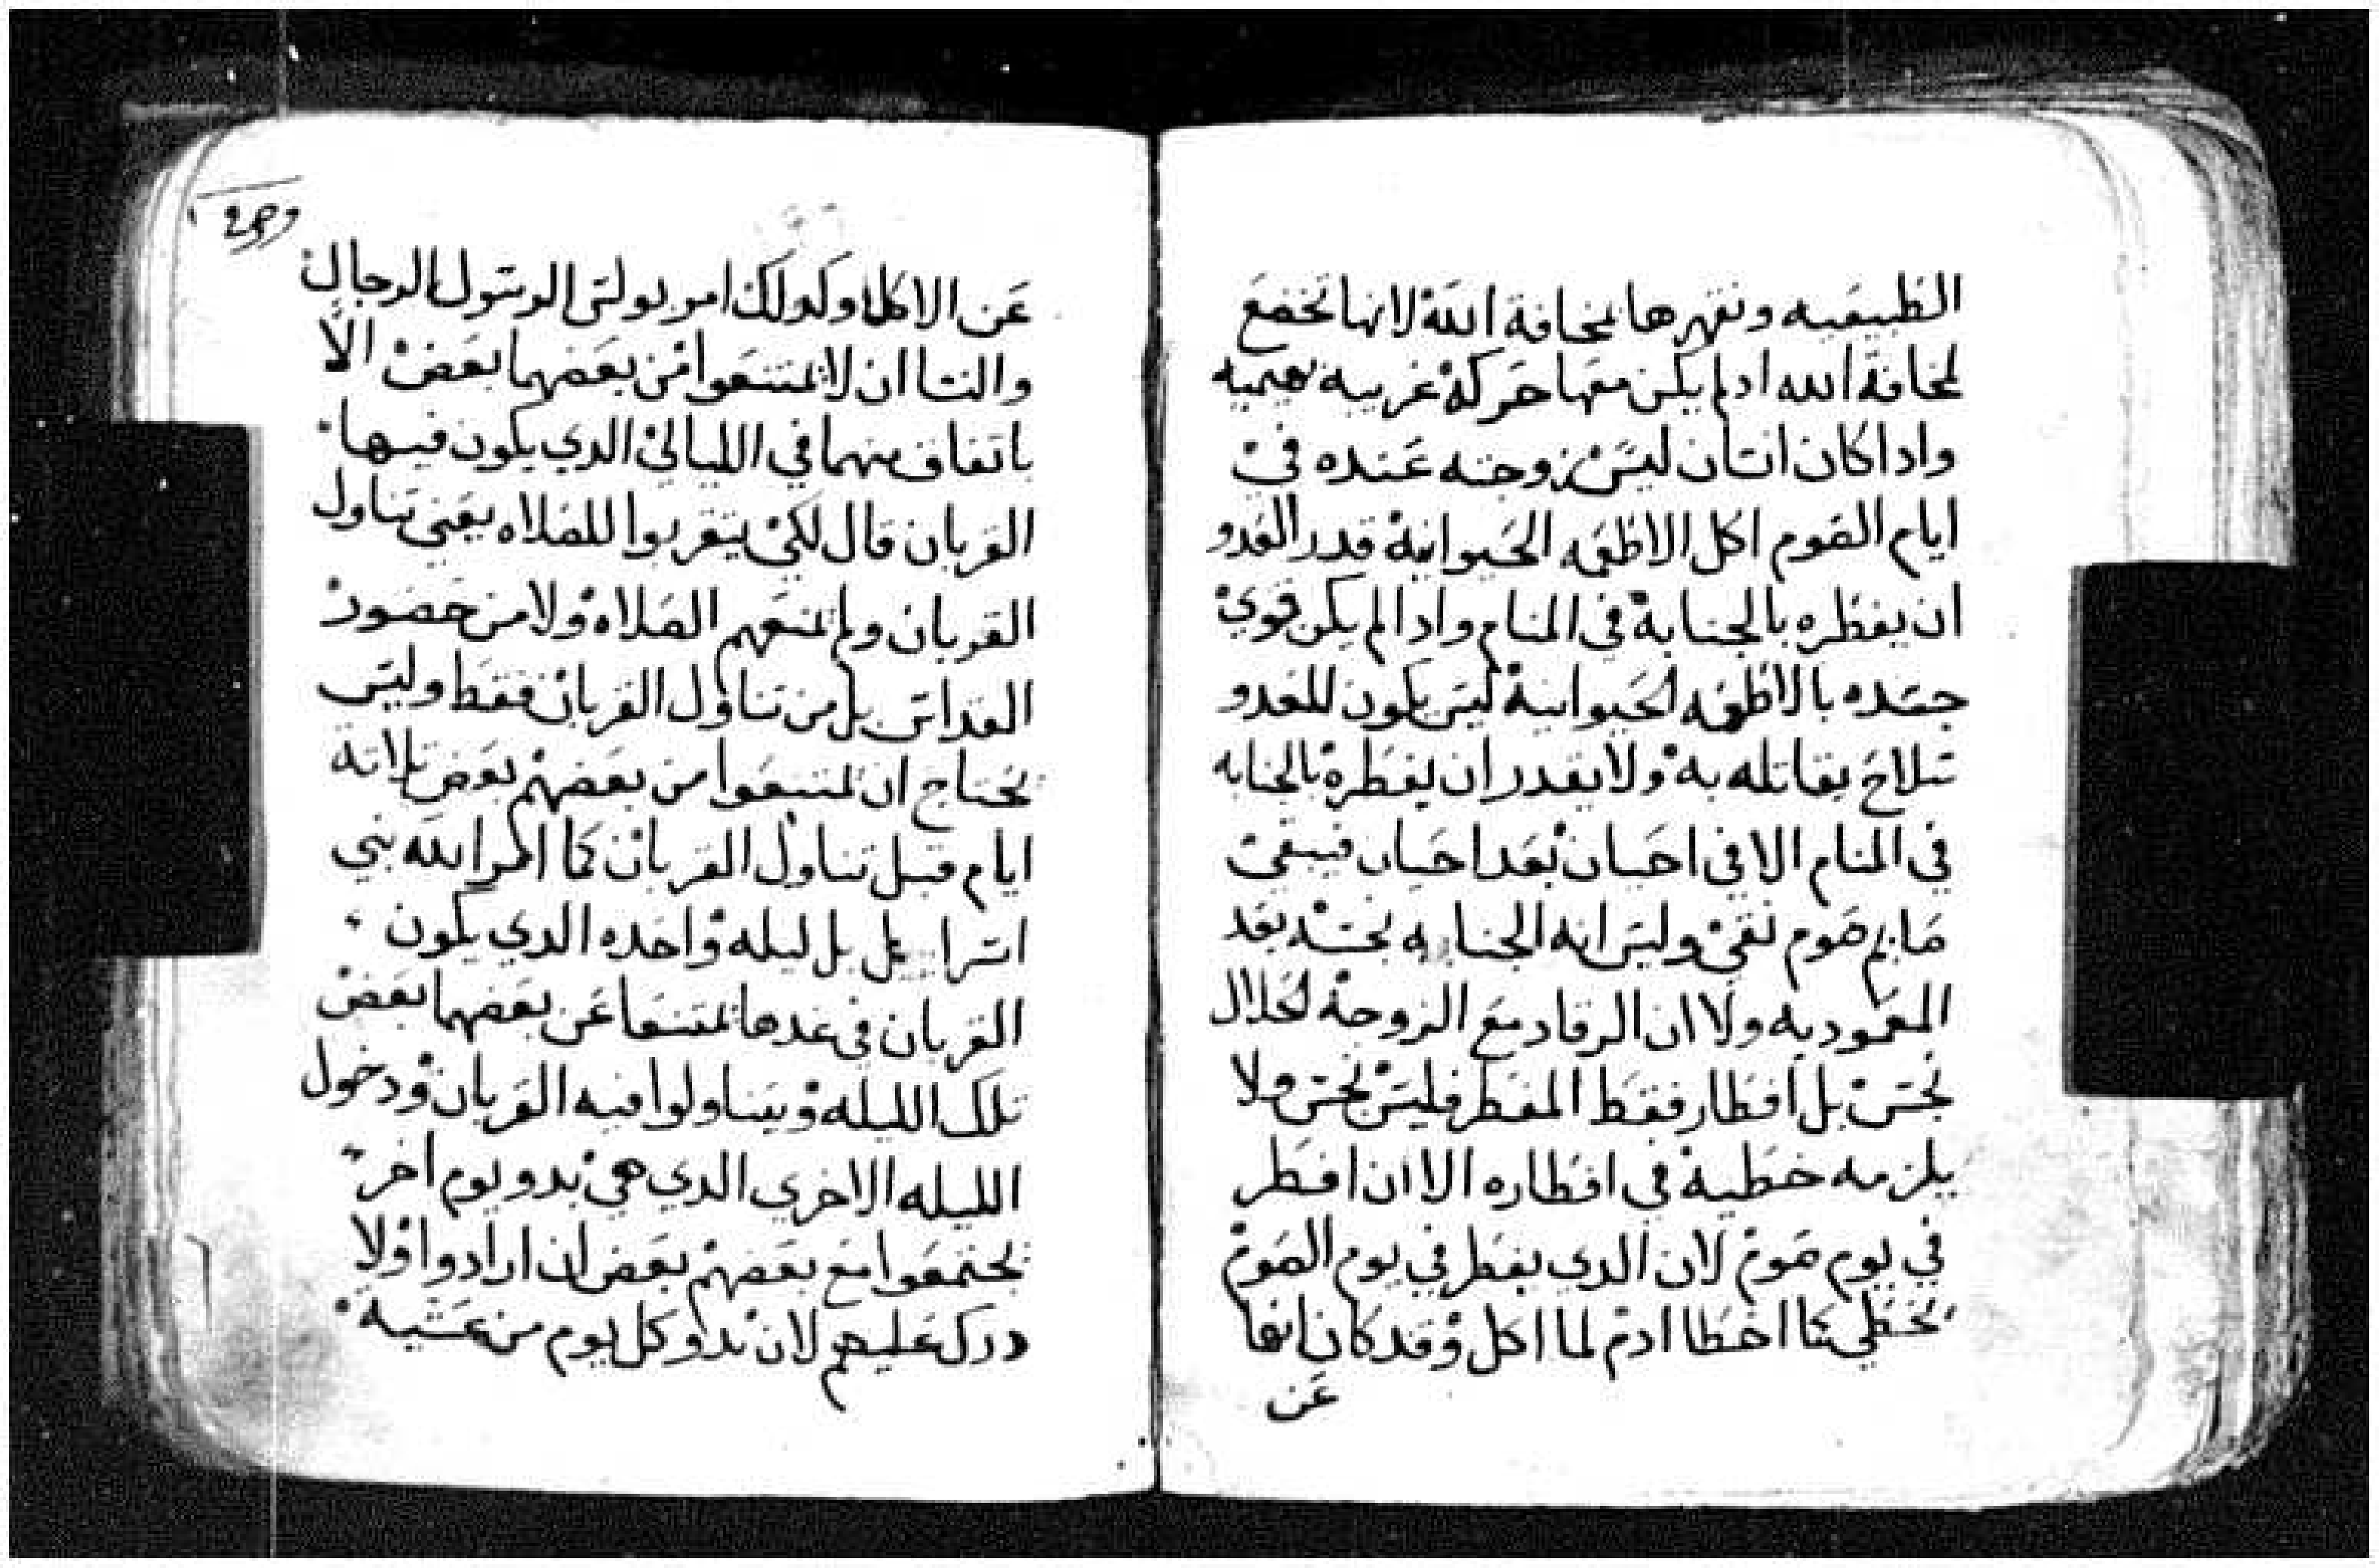 الطبيعيه ونقهرها بمخافة الله لانها تخضع
لمخافة الله ادلم يكن معها حركة غريبة
وادا كان انسان ليس زوجته عنده في
ايام الصوم اكل الاطعمه الحيوانية قدر العدو
ان يفطره بالجنابة في المنام وادا لم يكن قوي
جسده بالاطعمه الحيوانية ليس يكون للعدو
سلاح يقاتله به ولا يقدر ان يفطره بالجنابه
في المنام الا في احيان بعد احيان فيبقى
صايم صوم نقي وليس انه الجنابه بعد
المعموديه ولا ان الرقاد مع الزوجة الحلال
نجس بل افطار فقط المفطر فليس نجس ولا
يلزمه خطية في افطاره الا ان افطر
في يوم صوم لان الدي يفطر في يوم الصوم
يخطي كما اخطا ادم لما اكل وقد كان
عن
عن الاكل وكدلك امر بولس الرسول الرجال
والنسا ان لا يمتنعوا من بعضهما بعض الا
باتفاق منهما في الليالي الدي يكون فيها
القربان قال لكي يتقربوا للصلاه يعني تناول
القربان ولم يمنعهم الصلاه ولا من حضور
القداس بل من تناول القربان فقط وليس
يحتاج ان يمتنعوا من بعضهم بعض تلاتة
ايام قبل تناول القربان كما امر الله بني
اسراييل بل ليله واحده الدي يكون
القربان في غدها يمتنعا عن بعضهما بعض
تلك الليله ويتناولوا فيه القربان ودخول
الليله الاخري الدي هي بدو يوم اخر
يجتمعوا مع بعضهم بعض ان ارادوا ولا
درك عليهم لان بداو كل يوم من عشية